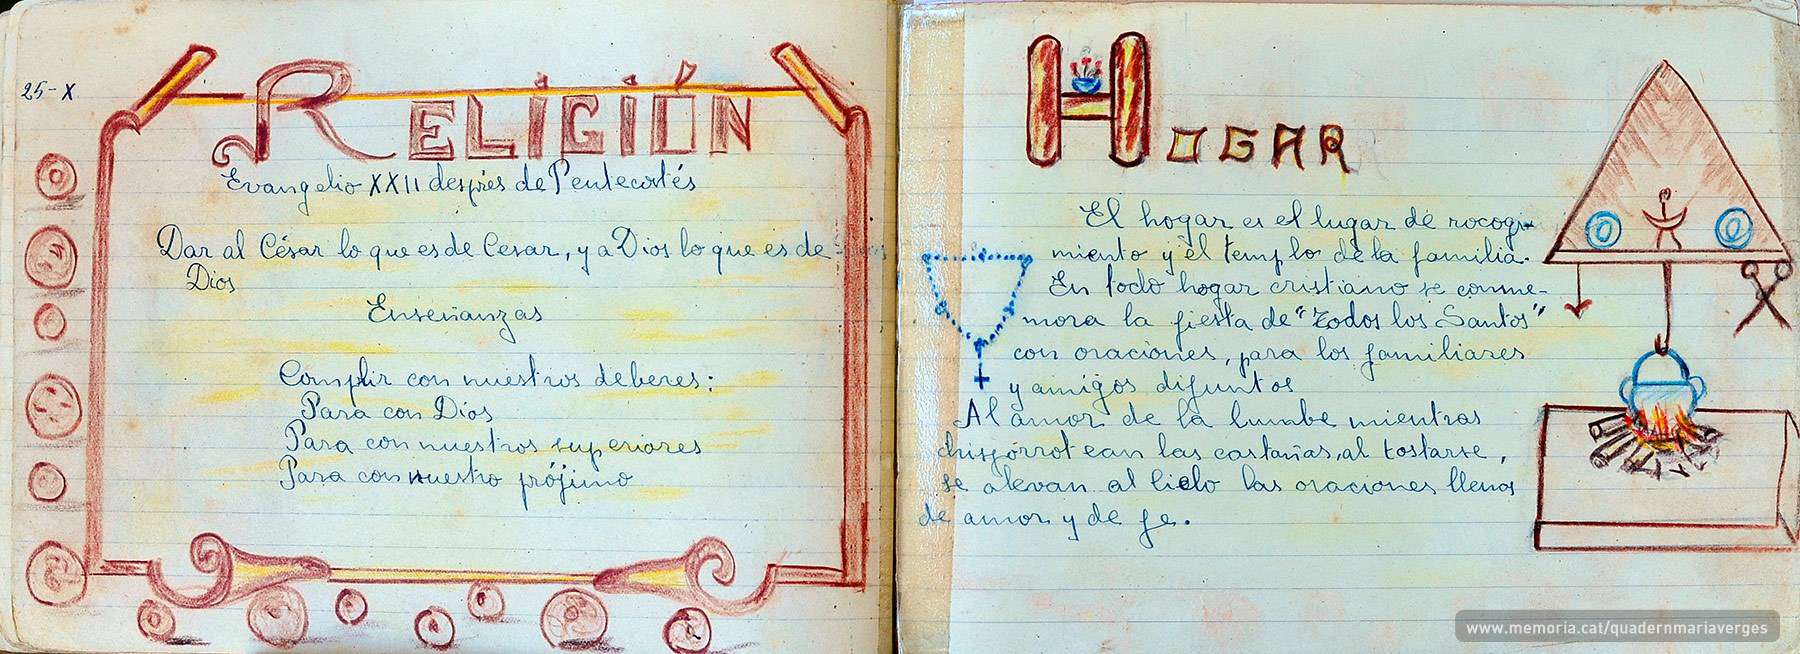 25-X
RELIGIÓN
Evangelio XXII després de Pentecostés
Dar al César lo que es de Cesar, y a Dios lo que es de
Dios
Enseñanzas
Complir con nuestros deberes:
Para con Dios
Para con nuestros superiores
Para con nuestro prójimo
HOGAR
El hogar es el lugar de rocogi-
miento y el templo de la familia.
En todo hogar cristiano se conme-
mora la fiesta de "Todos los Santos"
con oraciones, para los familiares
y amigos difuntos
Al amor de la lumbe mientras
chisporrotean las castañas, al tostarse,
se alevan al cielo las oraciones llenas
de amor y de fe.
www.memoria.cat/quadernmariaverges